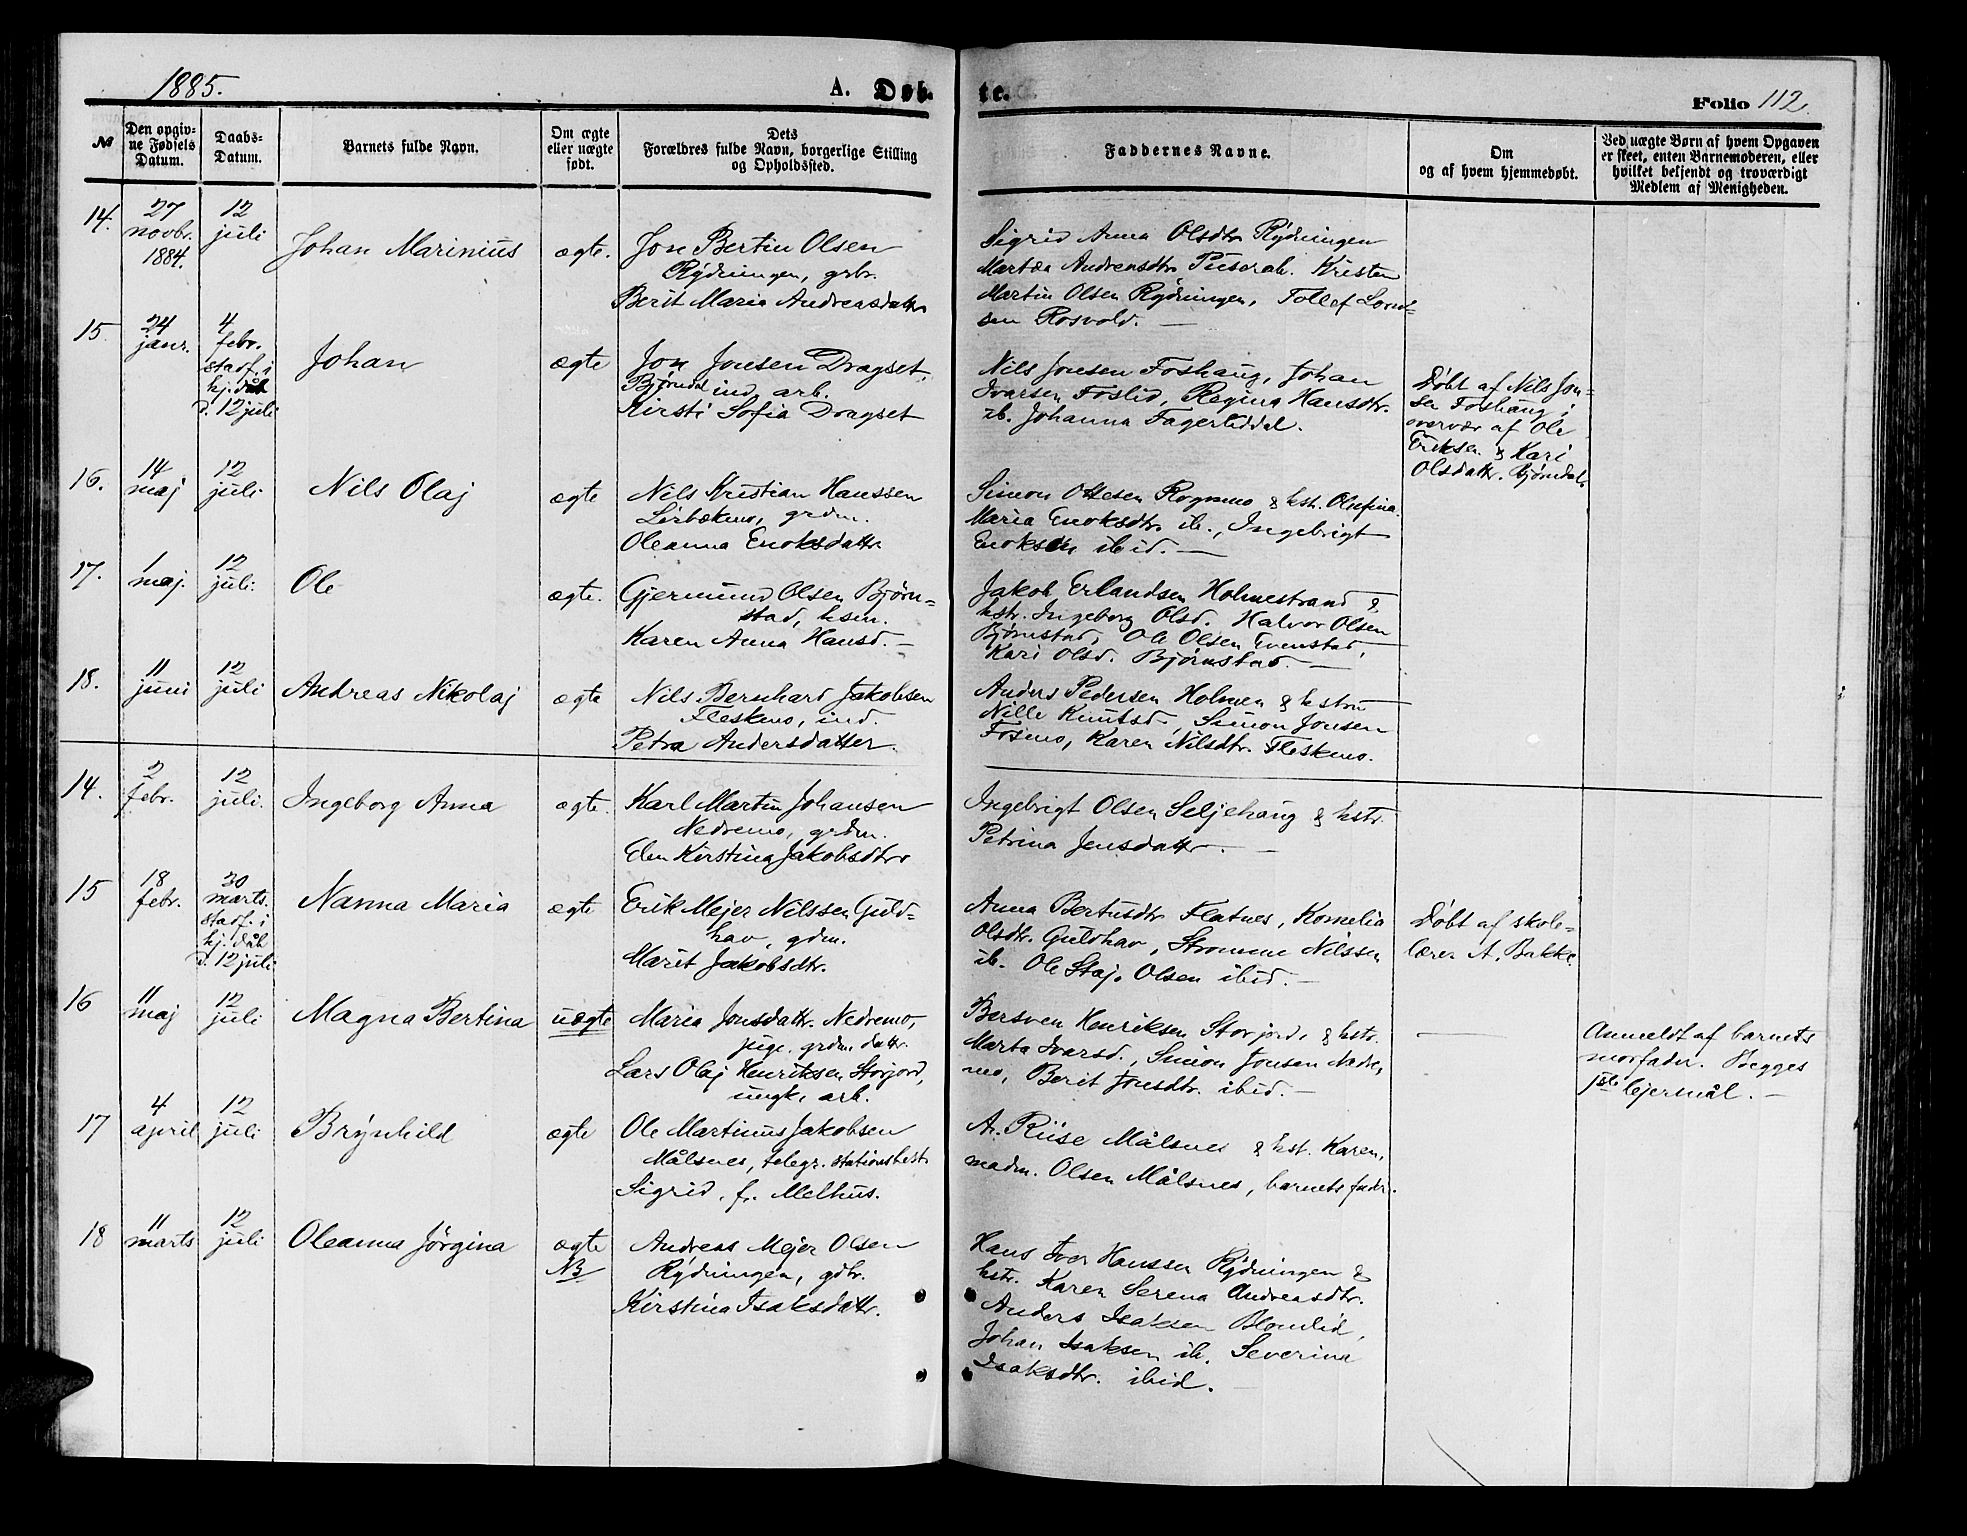 1885.
A. Døb-
te.
Folio 112.
№
Den opgiv-
ne Fødsels
Datum.
Daabs-
Datum.
Barnets fulde Navn.
Om ægte
eller uægte
født.
Dets
Forældres fulde Navn, borgerlige Stilling
og Opholdssted.
Faddernes Navne.
Om
og af hvem hjemmedøbt.
Ved uægte Børn af hvem Opgaven
er skeet, enten Barnemoderen, eller
hvilket bekjendt og troværdigt
Medlem af Menigheden.
14.
27
novbr.
1884.
12
juli
Johan Marinius
ægte.
Jon Bertin Olsen
Rydningen, grbr.
Berit Maria Andreasdattr
Sigrid Anna Olsdtr Rydningen
Martea Andreasdtr, Kristen
Martin Olsen Rydningen, Tollef
sen Rosvold. —
15.
24
janr.
4
febr.
stadf. i
hj. dåb
d. 12 juli
Johan
ægte
Jon Jonsen Dragset,
Bjørndal ind, arb.
Kirsti Sofia Dragset
Nils Jonsen Foshaug, Johan
Ivarsen Foslid, Regina Hansdtr.
ib. Johanna Fagerliddal.
Døbt af Nils Jon-
sen Foshaug i
overvær af Ole
Eriksen & Kari
Olsdattr. Bjørndal
16.
14
maj
12
juli
Nils Olaj
ægte
Nils Kristian Hanssen
Lérbækmo, grdm.
Oleanna Enoksdattr
Simon Ottesen Rognmo & hst. Olufina
Maria Enoksdtr. ib., Ingebrigt
Enoksen ibid. —
17.
1
maj.
12
juli.
Ole
ægte.
Gjermund Olsen Bjørn-
stad, hsm.
Karen Anna Hansd. —
Jakob Erlandsen Holmestrand &
hstr. Ingeborg Olsd. Halvor Olsen
Bjørnstad, Ole Olsen Evenstad,
Kari Olsd. Bjørnstad. —
18.
11
juni
12
juli
Andreas Nikolaj
ægte
Nils Bernhard Jakobsen
Fleskmo, ind.
Petra Andersdatter
Anders Pedersen Holmen & hstru
Nille Knutsd. Simon Jonsen
Fosmo, Karen Nilsdtr. Fleskmo.
14.
2
febr.
12
juli.
Ingeborg Anna
ægte.
Karl Martin Johansen
Nedremo, grdm.
Elen Kirstina Jakobsdtr
Ingebrigt Olsen Seljehaug & hstr.
Petrina Jensdattr. —
15
18
febr.
30
marts.
stadf. i
hj. dåb
d. 12 juli
Nanna Maria
ægte
Erik Mejer Nilssen Guld-
hav, gdm.
Marit Jakobsdtr.
Anna Bertusdtr Flatnes, Kornelia
Olsdtr. Guldhav, Stromme Nilssen
ib. Ole Staj. Olsen ibid. —
Døbt af skole-
lærer A. Bakke.
16
11
maj
12
juli
Magna Bertina
uægte
Maria Jonsdattr. Nedremo,
pige, grdm. dattr.
Lars Olaj Henriksen Storjord,
ungk, arb.
Bersven Henriksen Storjord, & hstr.
Marta Ivarsd., Simon Jonsen Nedre-
mo, Berit Jonsdtr. ibid. —
—
Anmeldt af barnets
morfader. Begges
1ste lejersmål. —
17
4
april
12
juli
Brynhild
ægte
Ole Martinus Jakobsen
Målsnes, telegr. stationsbest.
Sigrid, f. Melhus.
A. Riise Målsnes & hst. Karen,
madm. Olsen Målsnes, barnets fader.
18
11
marts
12
juli
Oleanna Jørgina
ægte
NB
Andreas Mejer Olsen
Rydningen, gdbr.
Kirstina Isaksdattr.
Hans Iver Hanssen Rydningen &
hstr. Karen Serena Andreasdtr.
Anders Isaksen Blomlid,
Johan Isaksen ib. Severina
Isaksdtr. ibid. —